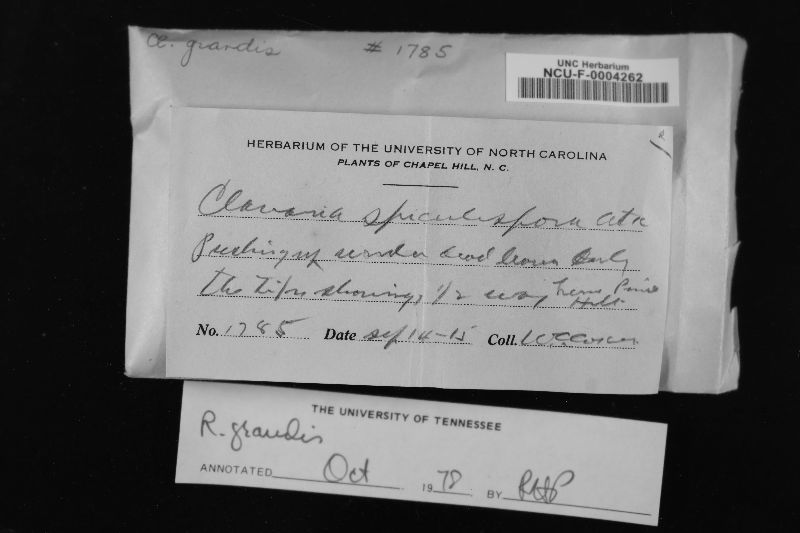 Cl. grandis # 1785
UNC Herbarium
NCU-F-0004262
HERBARIUM OF THE UNIVERSITY OF NORTH CAROLINA
PLANTS OF CHAPEL HILL, N. C.
Clavaria spiculospora Atk
Pushing up under dead leaves Only
the tips showing, 1/2 way
No. 1785 Date Sep 14-15 Coll. W.C. Coker
THE UNIVERSITY OF TENNESSEE
R. grandis
ANNOTATED Oct 1978 BY RHP